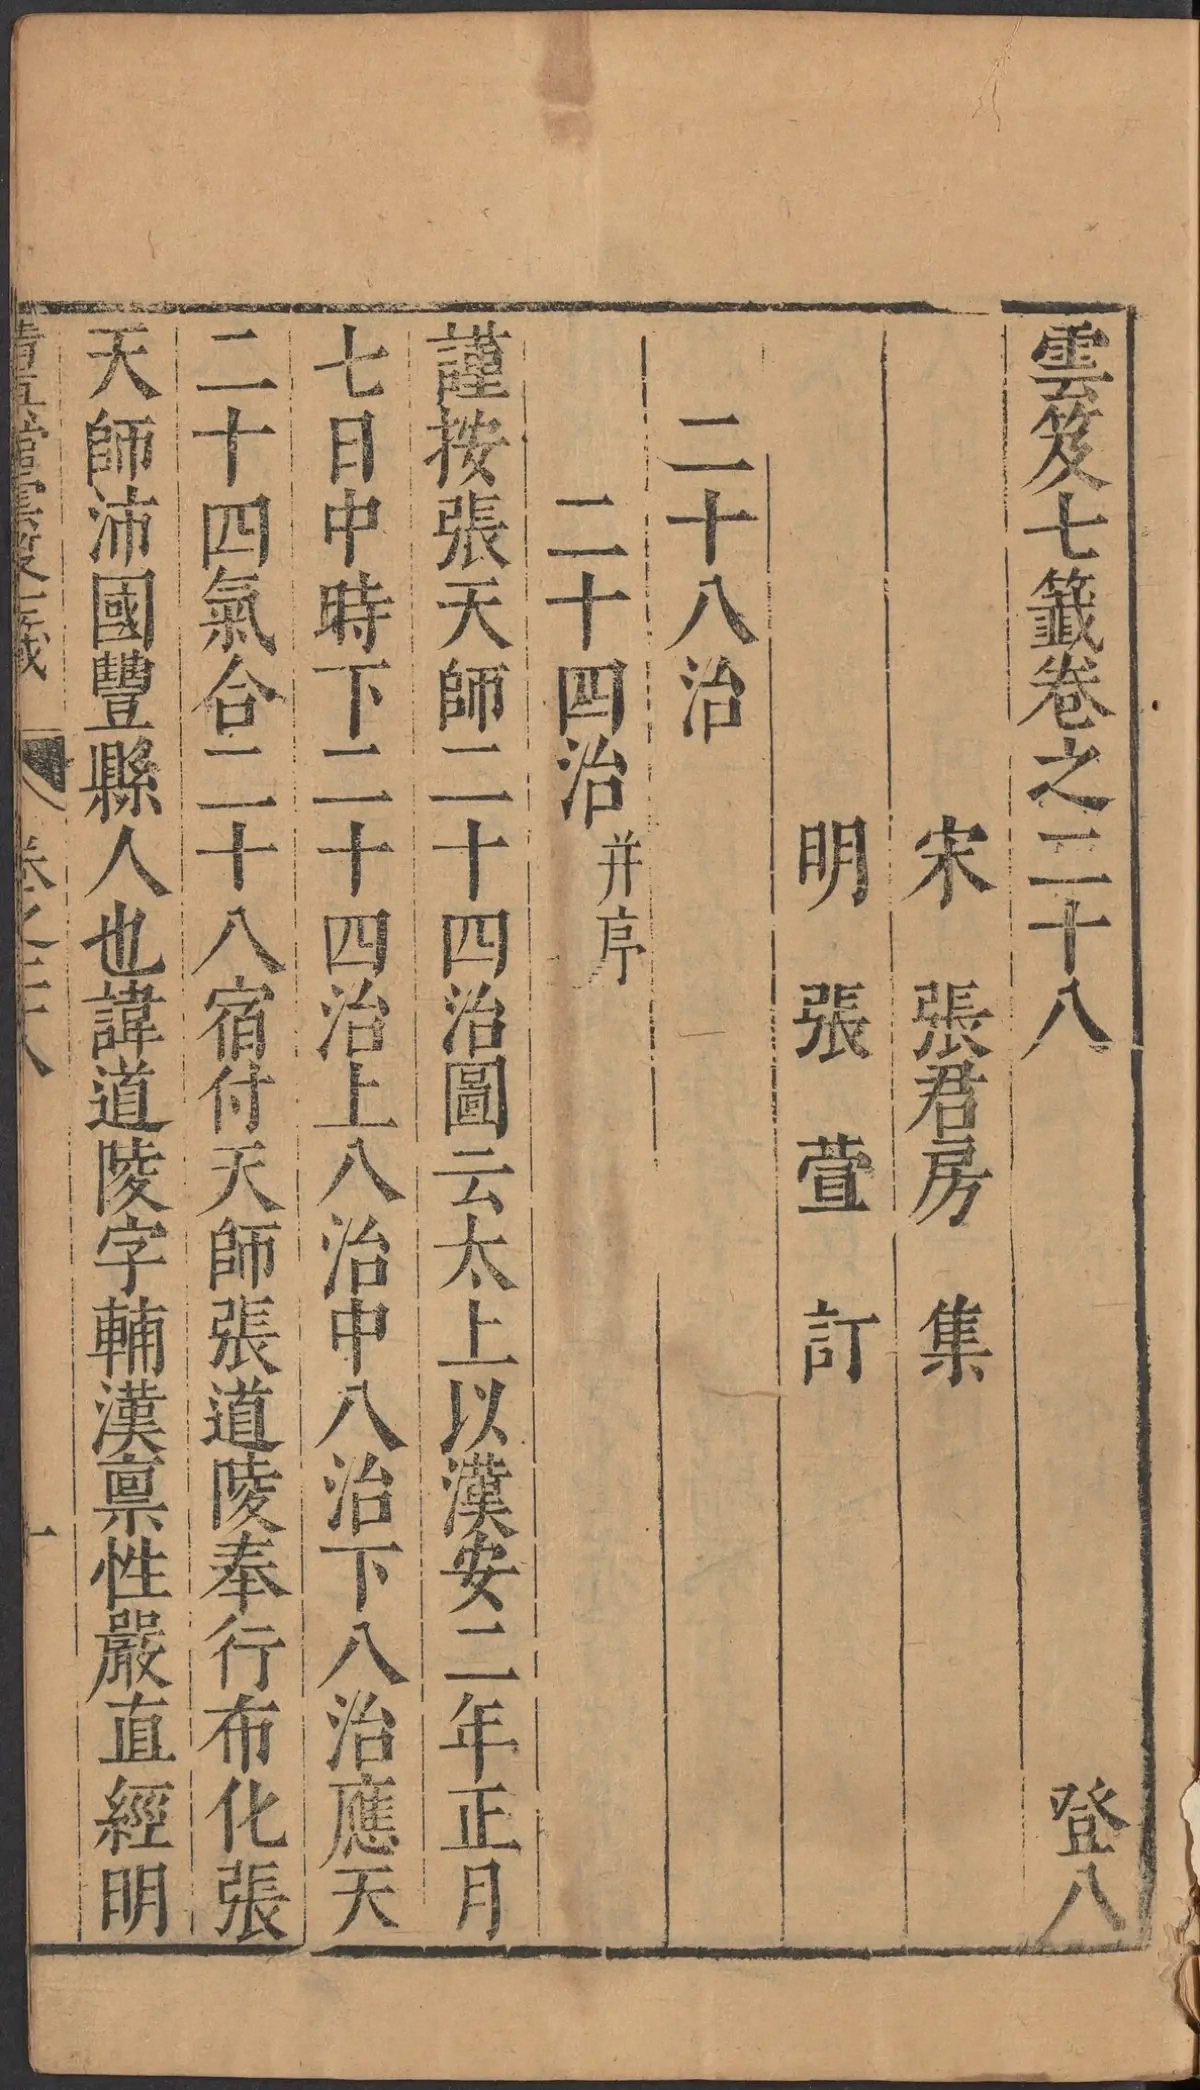 雲笈七籤卷之二十八 登八
宋 張君房 集
明 張萱 訂
二十八治
二十四治 并序
謹按張天師二十四治圖云太上以漢安二年正月
七日中時下二十四治上八治中八治下八治應天
二十四氣合二十八宿付天師張道陵奉行布化張
天師沛國豐縣人也諱道陵字輔漢禀性嚴直經明
卷之二十八 一